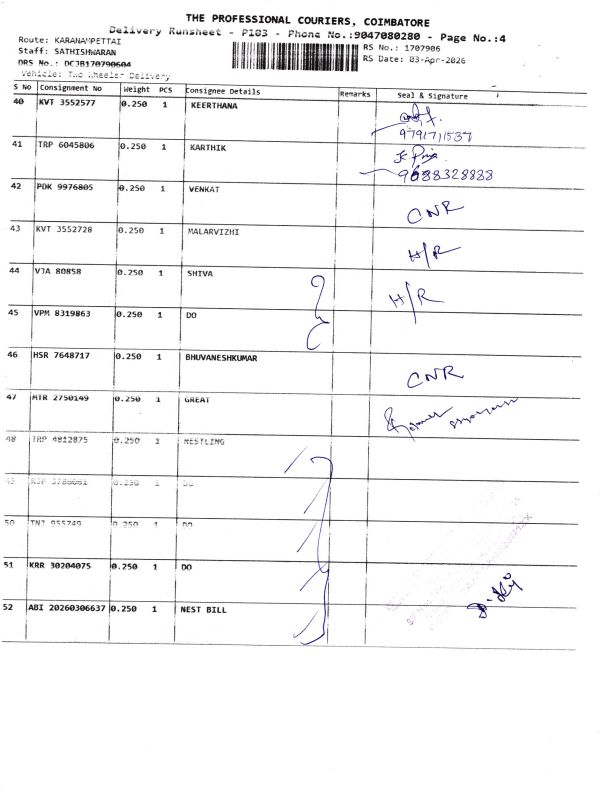 THE PROFESSIONAL COURIERS, COIMBATORE
Delivery Runsheet - P103 - Phone No.:9047080280 - Page No.:4
Route: KARANAMPETTAI
Staff: SATHISHWARAN
DRS No.: DCJB170790604
Vehicle: Two Wheeler Delivery
RS No.: 1707906
RS Date: 03-Apr-2026
S No Consignment No Weight PCS Consignee Details Remarks Seal & Signature
40 KVT 3552577 0.250 1 KEERTHANA
9791711537
41 TRP 6045806 0.250 1 KARTHIK
9688328888
42 PDK 9976805 0.250 1 VENKAT CNR
43 KVT 3552728 0.250 1 MALARVIZHI H/R
44 VJA 80858 0.250 1 SHIVA H/R
45 VPM 8319863 0.250 1 DO
46 HSR 7648717 0.250 1 BHUVANESHKUMAR CNR
47 MTR 2750149 0.250 1 GREAT
48 TRP 4812875 0.250 1 NESTLING
49 0.250 1 DO
50 TNJ 955749 0.250 1 DO
51 KRR 30204075 0.250 1 DO
52 ABI 20260306637 0.250 1 NEST BILL